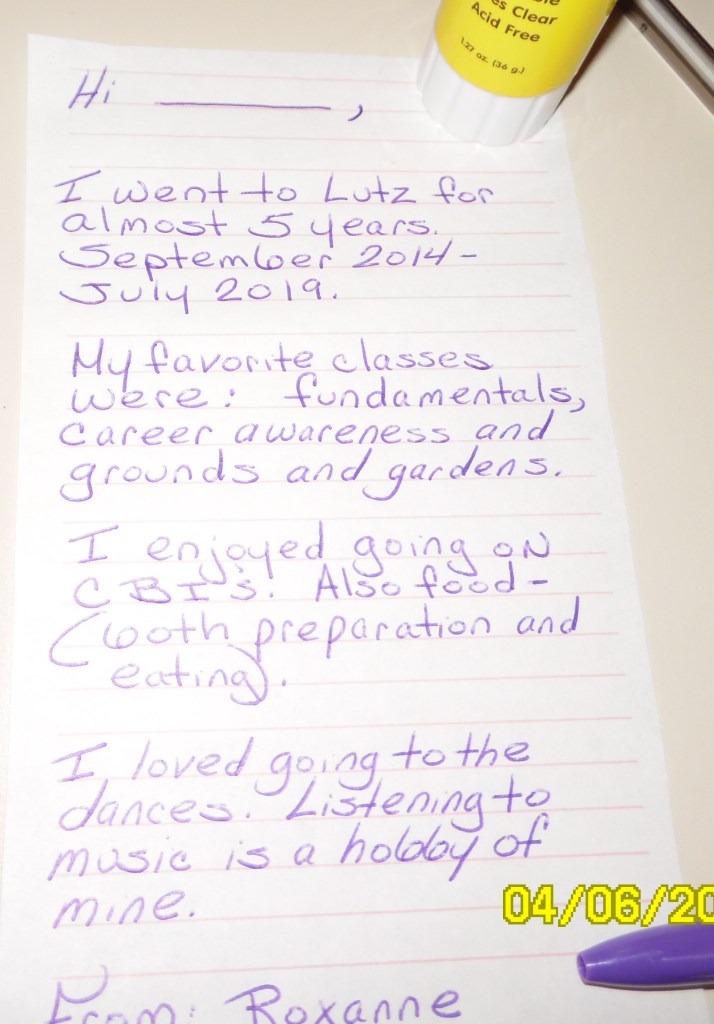 es Clear
Acid Free
1.27 oz. (36 g.)
Hi ________,
I went to Lutz for
almost 5 years.
September 2014-
July 2019.
My favorite classes
were: fundamentals,
career awareness and
grounds and gardens.
I enjoyed going on
CBI's. Also food-
(both preparation and
eating).
I loved going to the
dances. Listening to
music is a hobby of
mine.
04/06/20
From: Roxanne